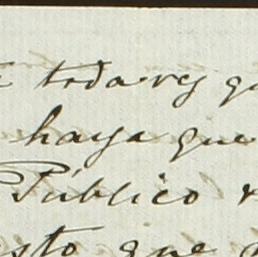 toda vez q
haya que
Público
sto que